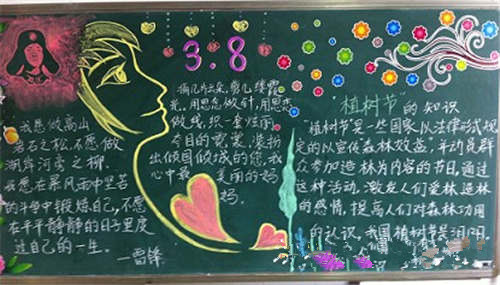 3.8
我愿做高山
岩石之松,不愿做
湖岸河旁之柳.
我愿在暴风雨中艰苦
的斗争中锻炼自己,不愿
在平平静静的日子里度
过自己的一生.
—雷锋
摘几片云朵,剪几缕霞
光,用思念做针,用思念
做线,织一套炫雨
夺目的霓裳,装扮
出倾国倾城的您,我
心中最 美丽的妈
妈.
"植树节"的知识
植树节"是一些国家以法律形式规
定的以宣传森林效益,并动员群
众参加造林为内容的节日,通过
这种活动,激发人们爱林造林
的感情,提高人们对森林功用
的认识,我国植树节是